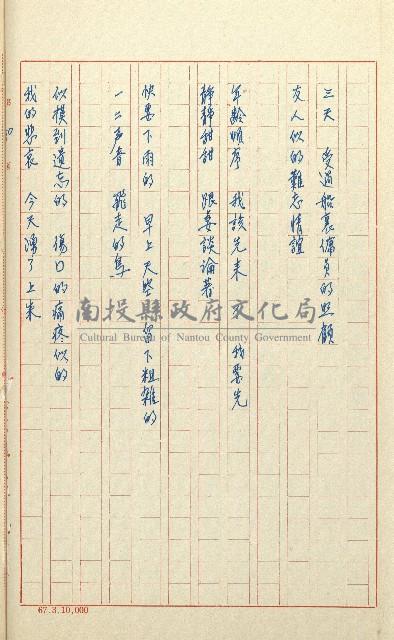 三天　受過船裏傭員的照顧
友人似的難忘情誼
年齡順序　我該先來　我要先
靜靜甜甜　跟妻談論著
快要下雨的　早上天空　留下粗雜的
一二声音　飛走的鳥
似摸到遺忘的　傷口的痛疼似的
我的悲哀　今天湧了上來
南投縣政府文化局
Cultural Bureau of Nantou County Government
67.3.10,000